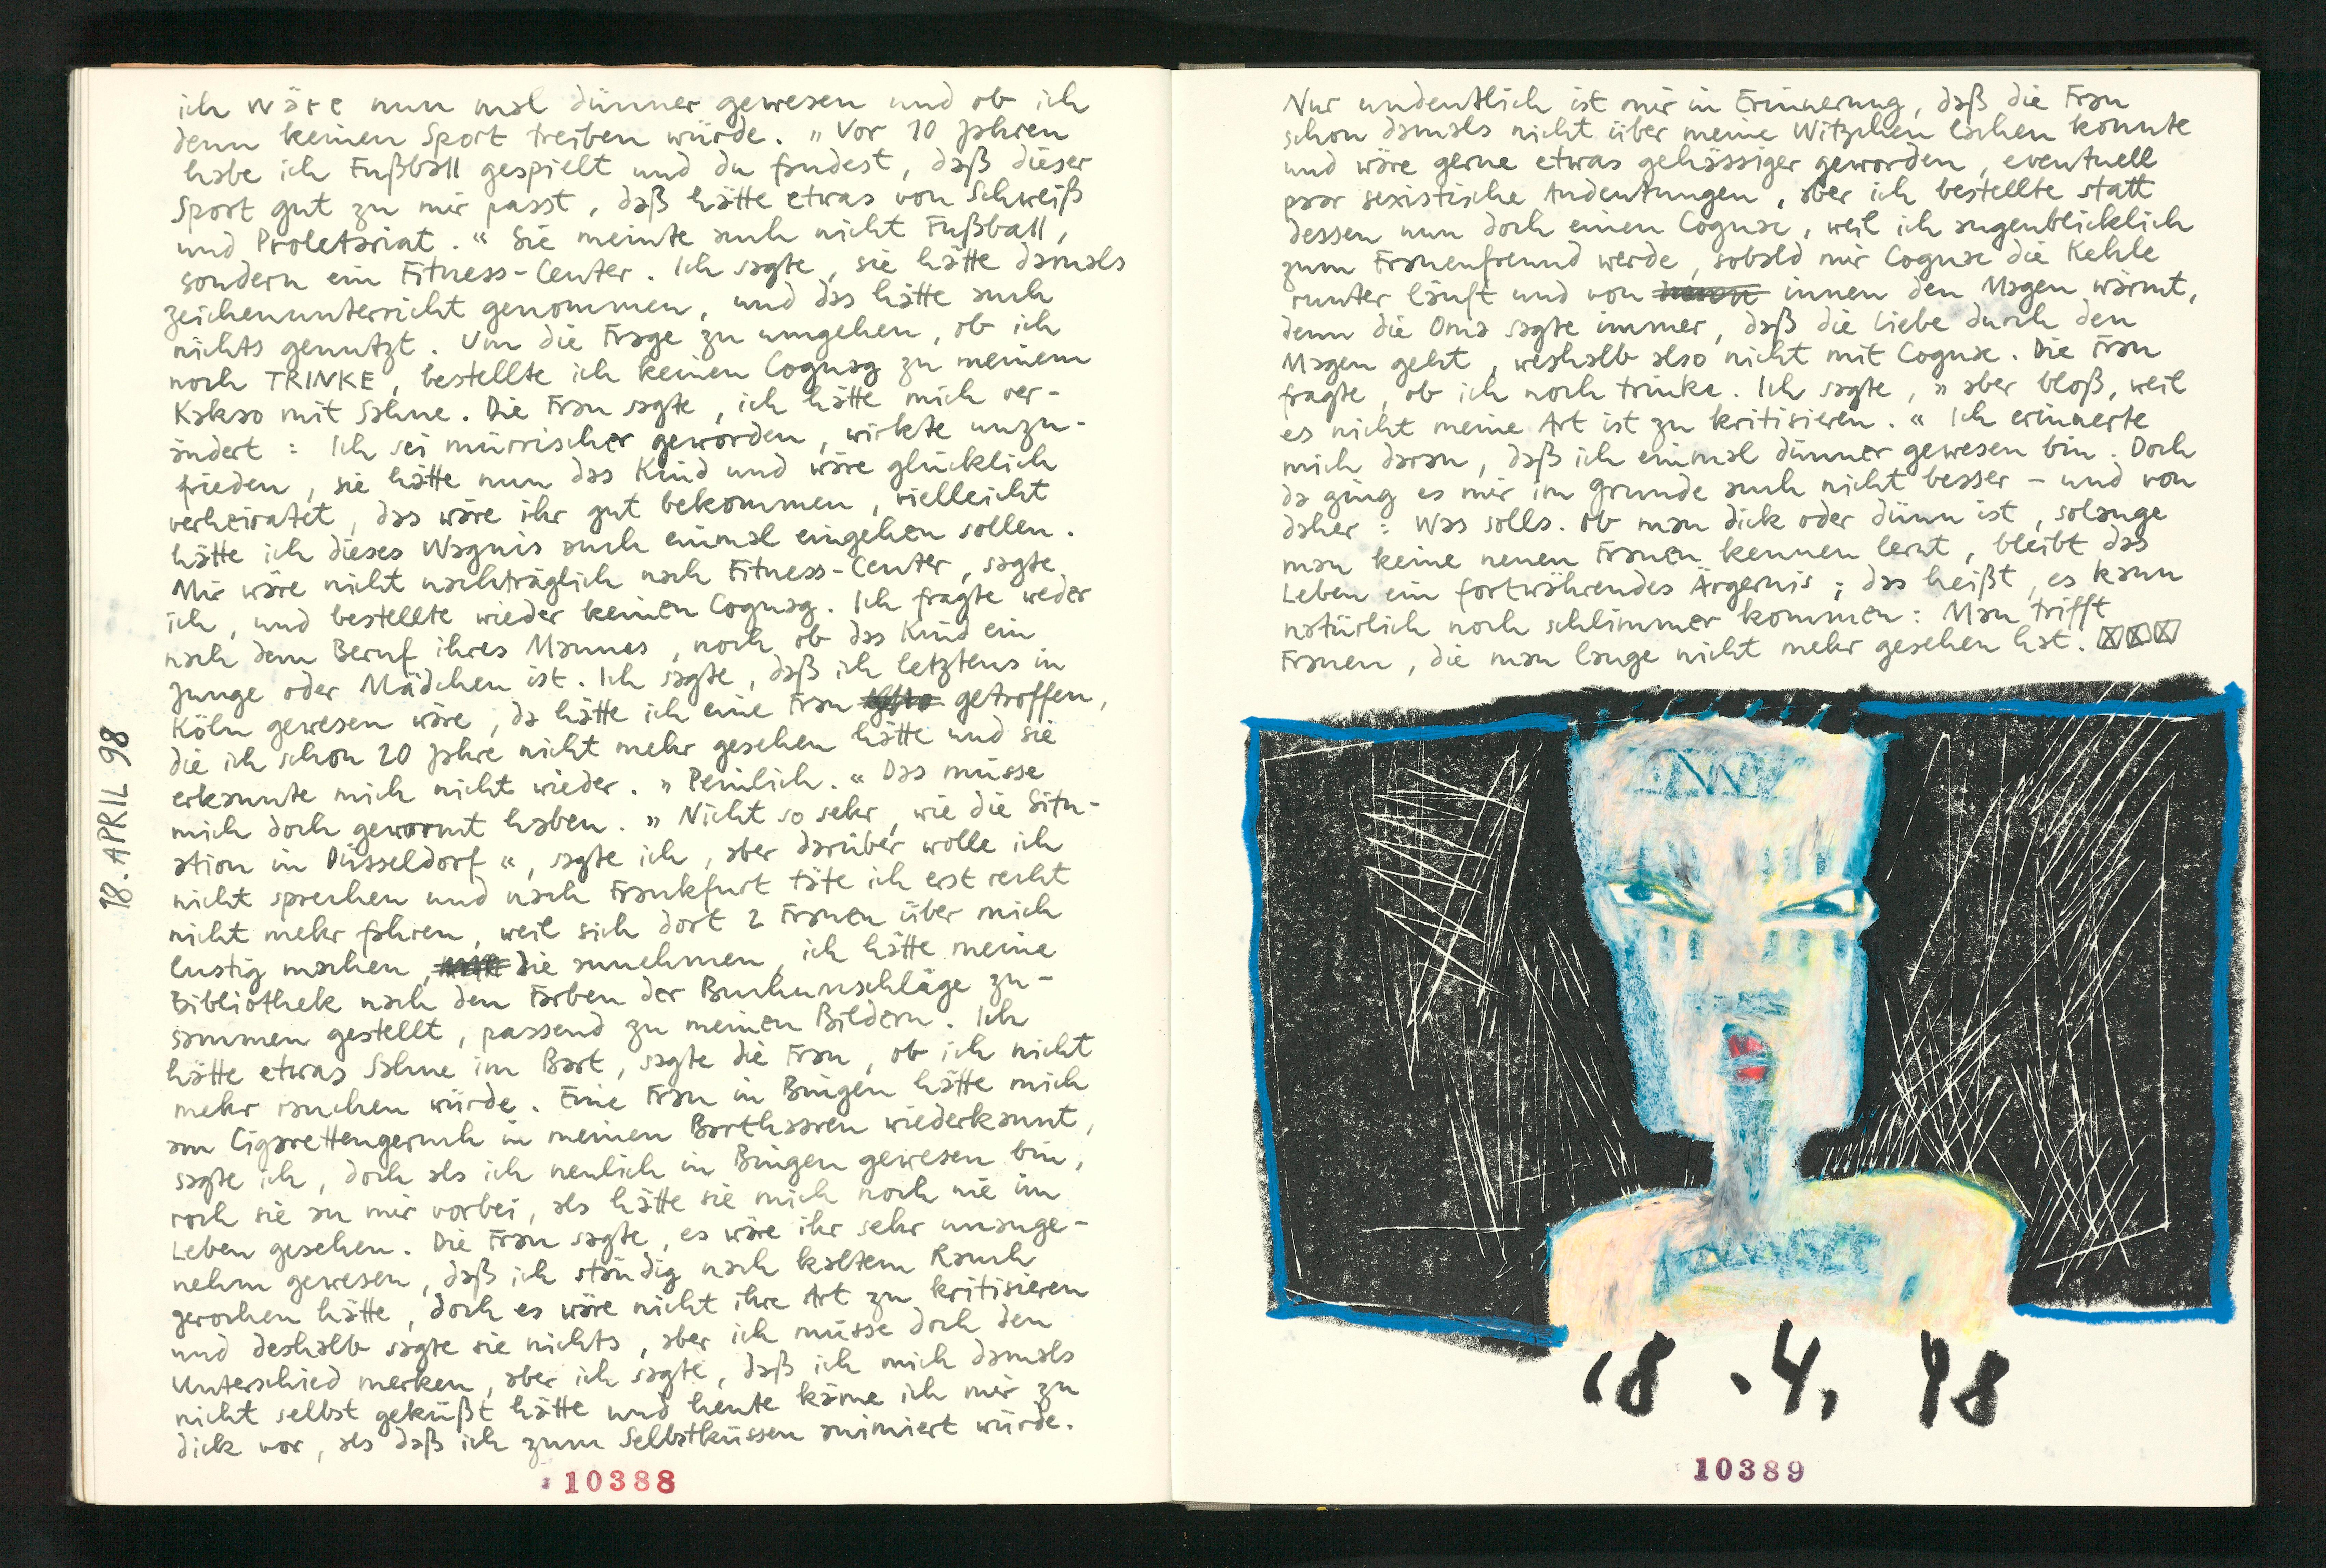 18. APRIL 98
ich wäre nun mal dünner gewesen und ob ich
denn keinen Sport treiben würde. „Vor 10 Jahren
habe ich Fußball gespielt und du fandest, daß dieser
Sport gut zu mir passt, daß hätte etwas von Schweiß
und Proletariat.“ Sie meinte auch nicht Fußball,
sondern ein Fitness-Center. Ich sagte, sie hätte damals
Zeichenunterricht genommen, und das hätte auch
nichts genutzt. Um die Frage zu umgehen, ob ich
noch TRINKE, bestellte ich keinen Cognag zu meinem
Kakao mit Sahne. Die Frau sagte, ich hätte mich ver-
ändert: Ich sei mürrischer geworden, wirkte unzu-
frieden, sie hätte nun das Kind und wäre glücklich
verheiratet, das wäre ihr gut bekommen, vielleicht
hätte ich dieses Wagnis auch einmal eingehen sollen.
Mir wäre nicht nachträglich nach Fitness-Center, sagte
ich, und bestellte wieder keinen Cognag. Ich fragte weder
nach dem Beruf ihres Mannes, noch ob das Kind ein
Junge oder Mädchen ist. Ich sagte, daß ich letztens in
Köln gewesen wäre, da hätte ich eine Frau getroffen,
die ich schon 20 Jahre nicht mehr gesehen hätte und sie
erkannte mich nicht wieder. „Peinlich.“ Das müsse
mich doch gewormt haben. „Nicht so sehr, wie die Situ-
ation in Düsseldorf“, sagte ich, aber darüber wolle ich
nicht sprechen und nach Frankfurt täte ich erst recht
nicht mehr fahren, weil sich dort 2 Frauen über mich
lustig machen, die annehmen, ich hätte meine
Bibliothek nach den Farben der Buchumschläge zu-
sammen gestellt, passend zu meinen Bildern. Ich
hätte etwas Sahne im Bart, sagte die Frau, ob ich nicht
mehr rauchen würde. Eine Frau in Bingen hätte mich
am Cigarettengeruch in meinen Barthaaren wiederkannt,
sagte ich, doch als ich neulich in Bingen gewesen bin,
roch sie an mir vorbei, als hätte sie mich noch nie im
Leben gesehen. Die Frau sagte, es wäre ihr sehr unange-
nehm gewesen, daß ich ständig nach kaltem Rauch
gerochen hätte, doch es wäre nicht ihre Art zu kritisieren
und deshalb sagte sie nichts, aber ich müsse doch den
Unterschied merken, aber ich sagte, daß ich mich damals
nicht selbst geküßt hätte und heute käme ich mir zu
dick vor, als daß ich zum Selbstküssen animiert würde.
10388
Nur undeutlich ist mir in Erinnerung, daß die Frau
schon damals nicht über meine Witzchen lachen konnte
und wäre gerne etwas gehässiger geworden, eventuell
paar sexistische Andeutungen, aber ich bestellte statt
dessen nun doch einen Cognac, weil ich augenblicklich
zum Frauenfreund werde, sobald mir Cognac die Kehle
runter läuft und von innen den Magen wärmt,
denn die Oma sagte immer, daß die Liebe durch den
Magen geht, weshalb also nicht mit Cognac. Die Frau
fragte, ob ich noch trinke. Ich sagte, „aber bloß, weil
es nicht meine Art ist zu kritisieren.“ Ich erinnerte
mich daran, daß ich einmal dünner gewesen bin. Doch
da ging es mir im Grunde auch nicht besser – und von
daher: Was solls. Ob man dick oder dünn ist, solange
man keine neuen Frauen kennen lernt, bleibt das
Leben ein fortwährendes Ärgernis; das heißt, es kann
natürlich noch schlimmer kommen: Man trifft
Frauen, die man lange nicht mehr gesehen hat.
18.4.98
10389